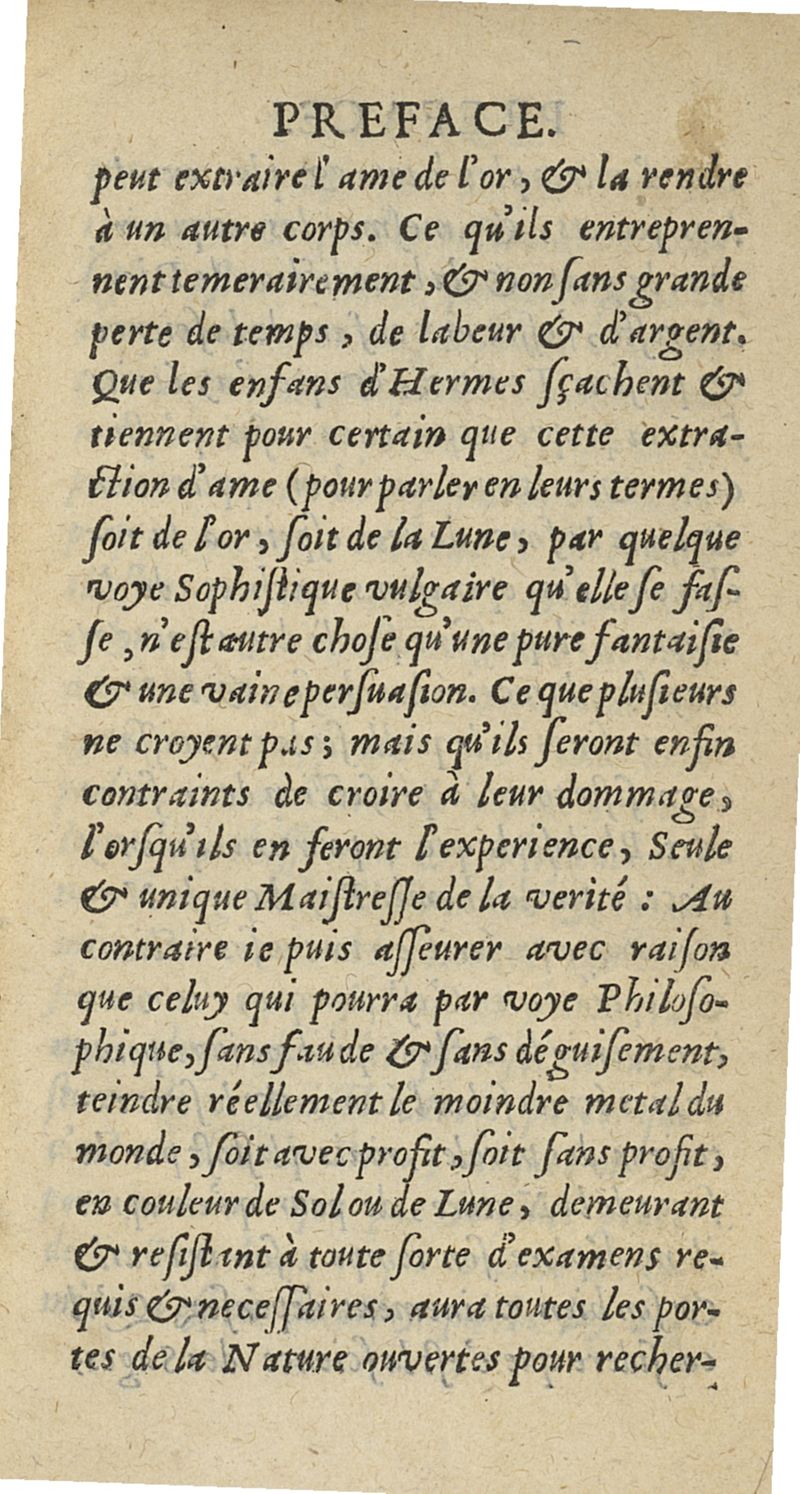 PREFACE.
peut extraire l'ame de l'or, & la rendre
à un autre corps. Ce qu'ils entrepren-
nent temerairement, & non ſans grande
perte de temps, de labeur & d'argent.
Que les enfans d'Hermes ſçachent &
tiennent pour certain que cette extra-
ction d'ame (pour parler en leurs termes)
ſoit de l'or, ſoit de la Lune, par quelque
voye Sophiſtique vulgaire qu'elle ſe faſ-
ſe, n'eſt autre choſe qu'une pure fantaiſie
& une vaine perſuaſion. Ce que pluſieurs
ne croyent pas; mais qu'ils ſeront enfin
contraints de croire à leur dommage,
l'orſqu'ils en feront l'experience, Seule
& unique Maiſtreſſe de la verité : Au
contraire ie puis aſſeurer avec raiſon
que celuy qui pourra par voye Philoſo-
phique, ſans faude & ſans déguiſement,
teindre réellement le moindre metal du
monde, ſoit avec profit, ſoit ſans profit,
en couleur de Sol ou de Lune, demeurant
& reſiſtant à toute ſorte d'examens re-
quis & neceſſaires, aura toutes les por-
tes de la Nature ouvertes pour recher-